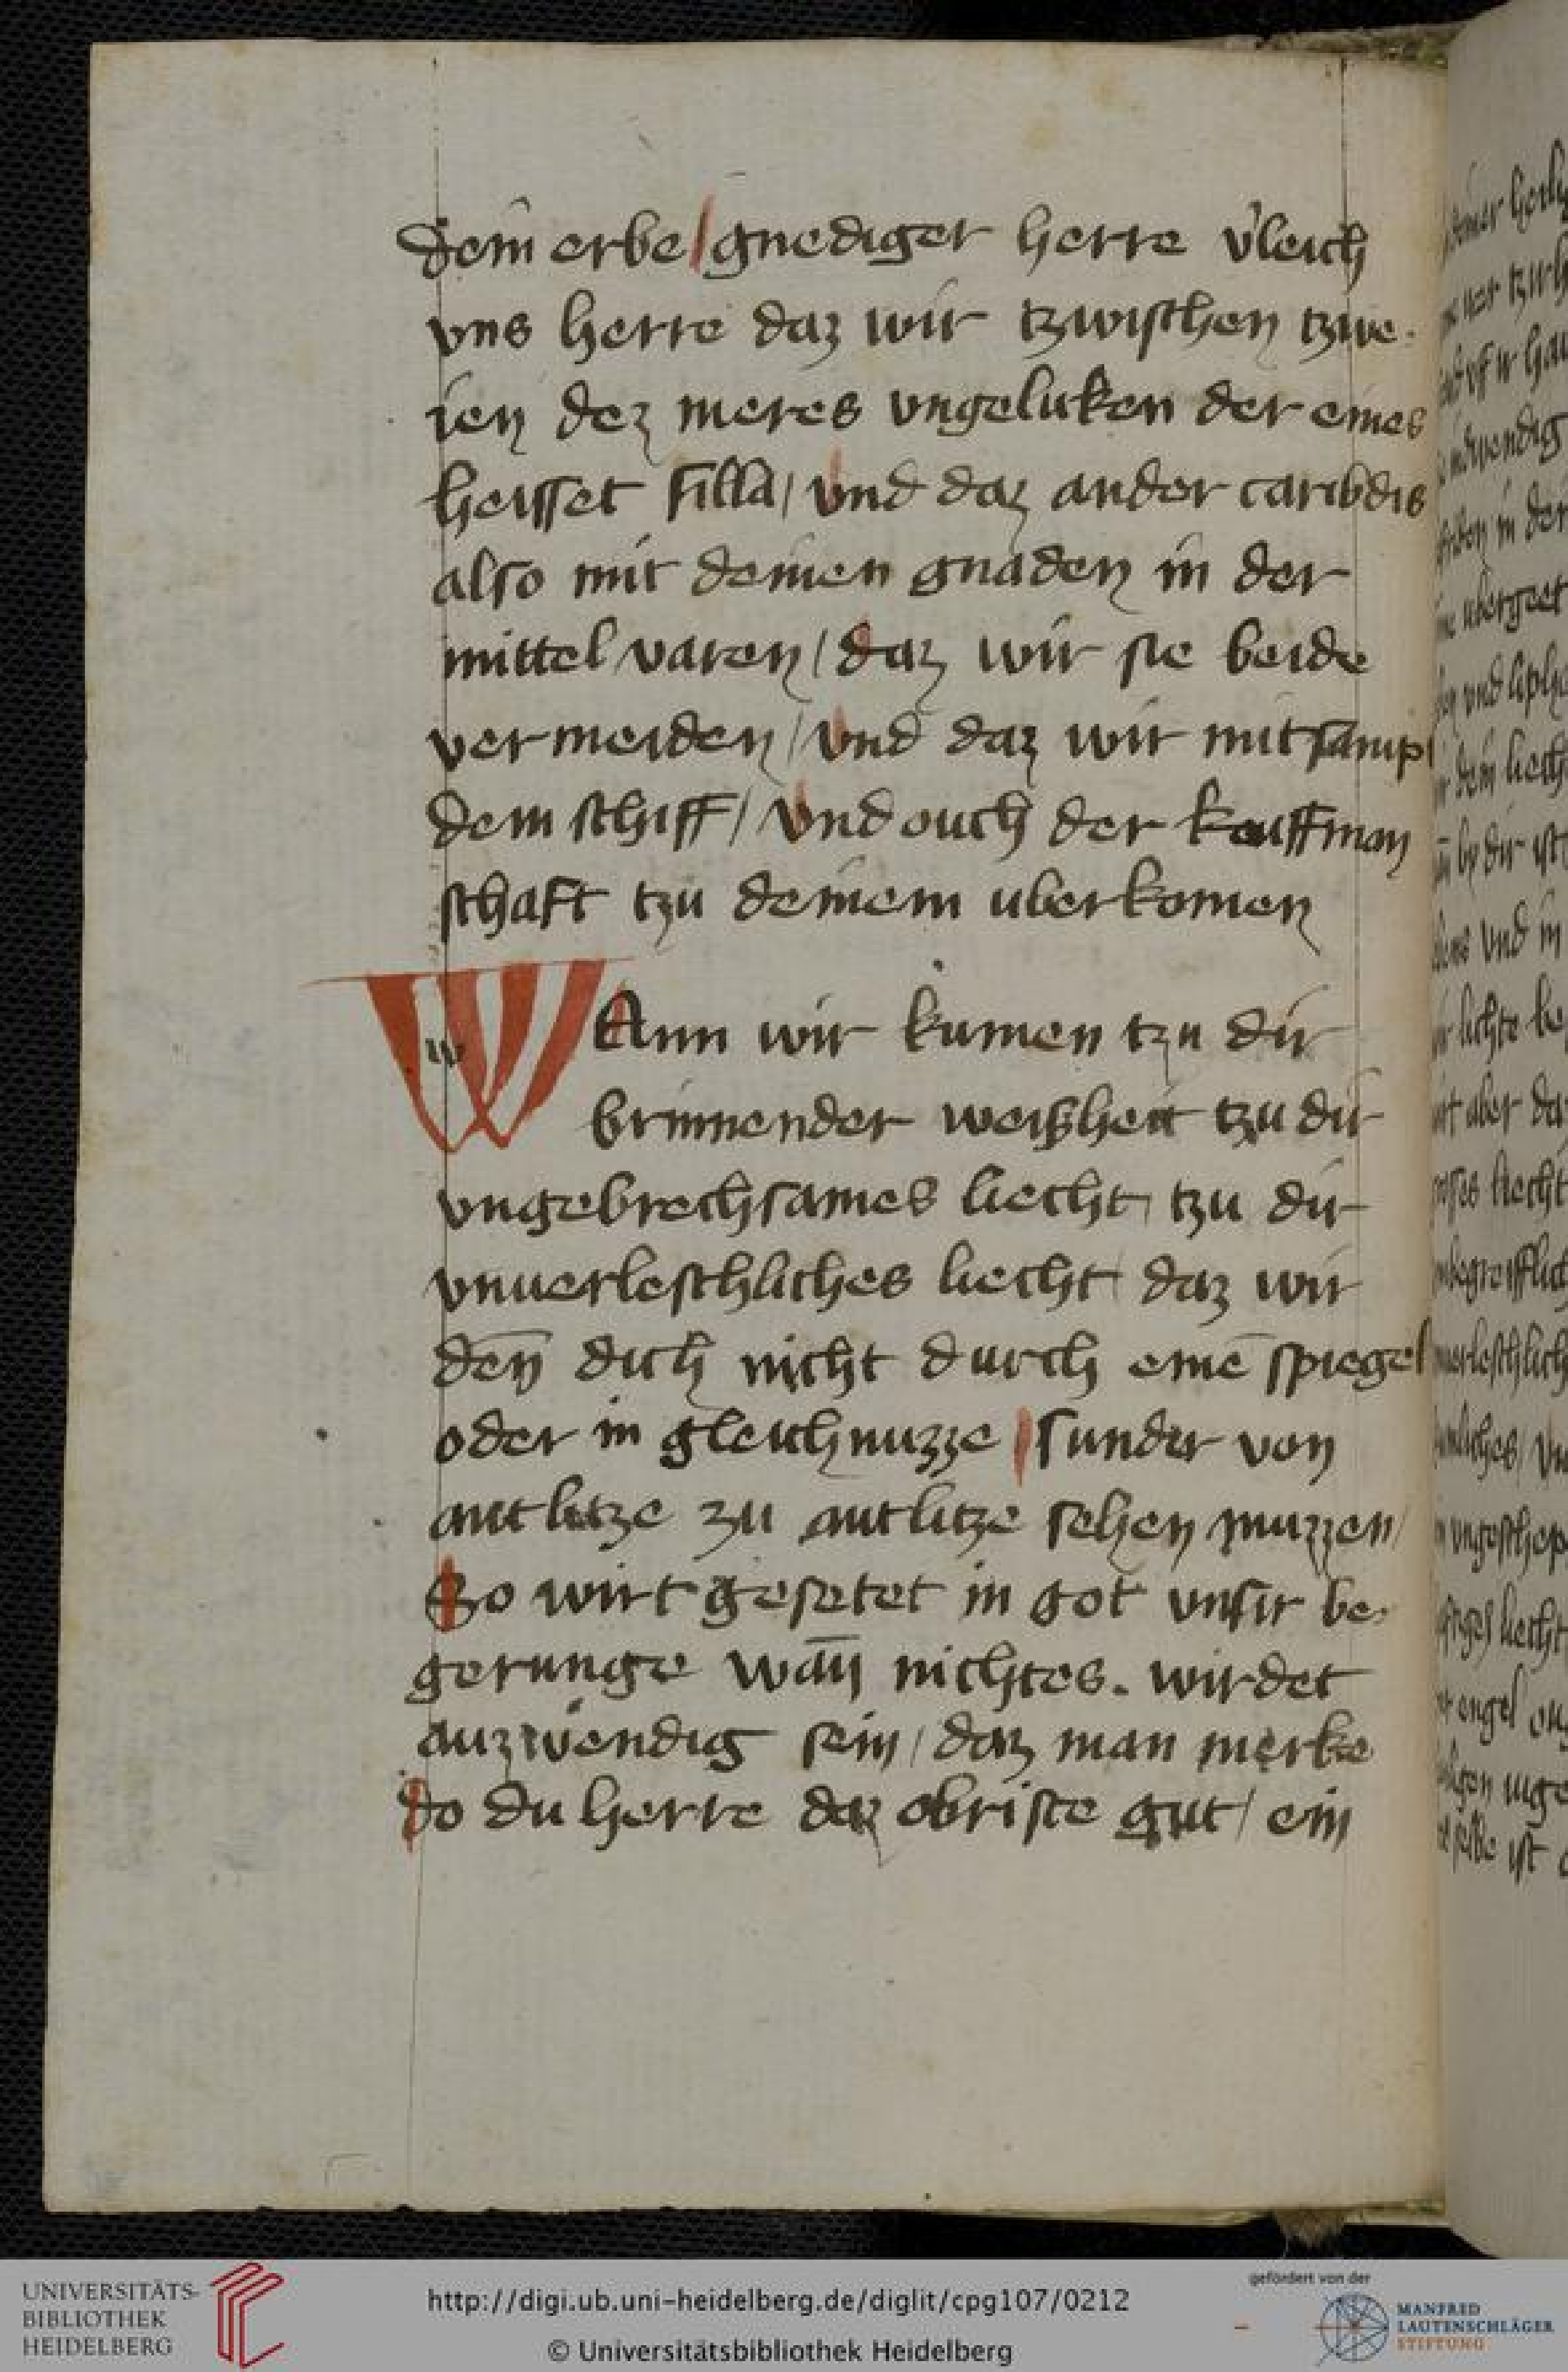 dein erbe / gnediger herre v̓leich
vns herre daz wir tzwischen tzwe-
ien dez meres vngeluken der eines
heisset silla / vnd daz ander caribdis
also mit deinen gnaden in der
mittel varen / daz wir sie beide
vermeiden / vnd daz wir mitsampt
dem schiff / vnd ouch der kauffman
schaft tzu deinem uberkomen
WAnn wir kumen tzu dir
brinnender weisheit tzu dir
vngebrechsames liecht / tzu dir
vnuerleschliches liecht / daz wir
den̄ dich nicht durch einē spiegel
oder in gleichnuzze / sunder von
antlutze zu antlitze sehen muzzen /
So wirt gesetet in got vnsir be-
gerunge wan̄ nichtes. wirdet
auzwendig sein / daz man merke
do du herre daz obriste gut / ein
UNIVERSITÄTS-
BIBLIOTHEK
HEIDELBERG
http://digi.ub.uni-heidelberg.de/diglit/cpg107/0212
© Universitätsbibliothek Heidelberg
gefördert von der
MANFRED
LAUTENSCHLÄGER
STIFTUNG